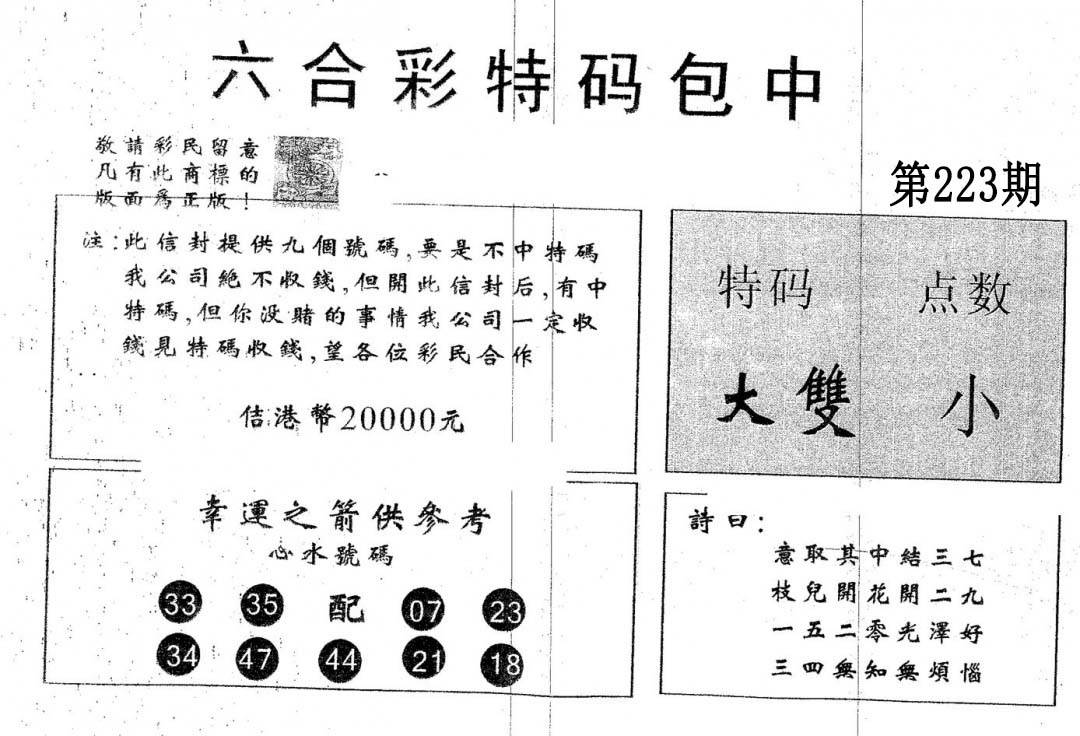 六合彩特码包中
敬請彩民留意
凡有此商標的
版面爲正版！
第223期
注：此信封提供九個號碼，要是不中特碼
我公司絶不收錢，但開此信封后，有中
特碼，但你没賭的事情我公司一定收
錢見特碼收錢，望各位彩民合作
佶港幣20000元
特码 点数
大雙 小
幸運之箭供參考
心水號碼
33 35 配 07 23
34 47 44 21 18
詩曰：
意取其中結三七
枝兒開花開二九
一五二零光澤好
三四無知無煩惱